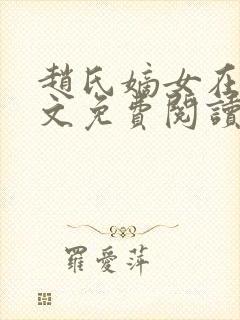 趙氏嫡女在
文免費閱讀
羅愛萍